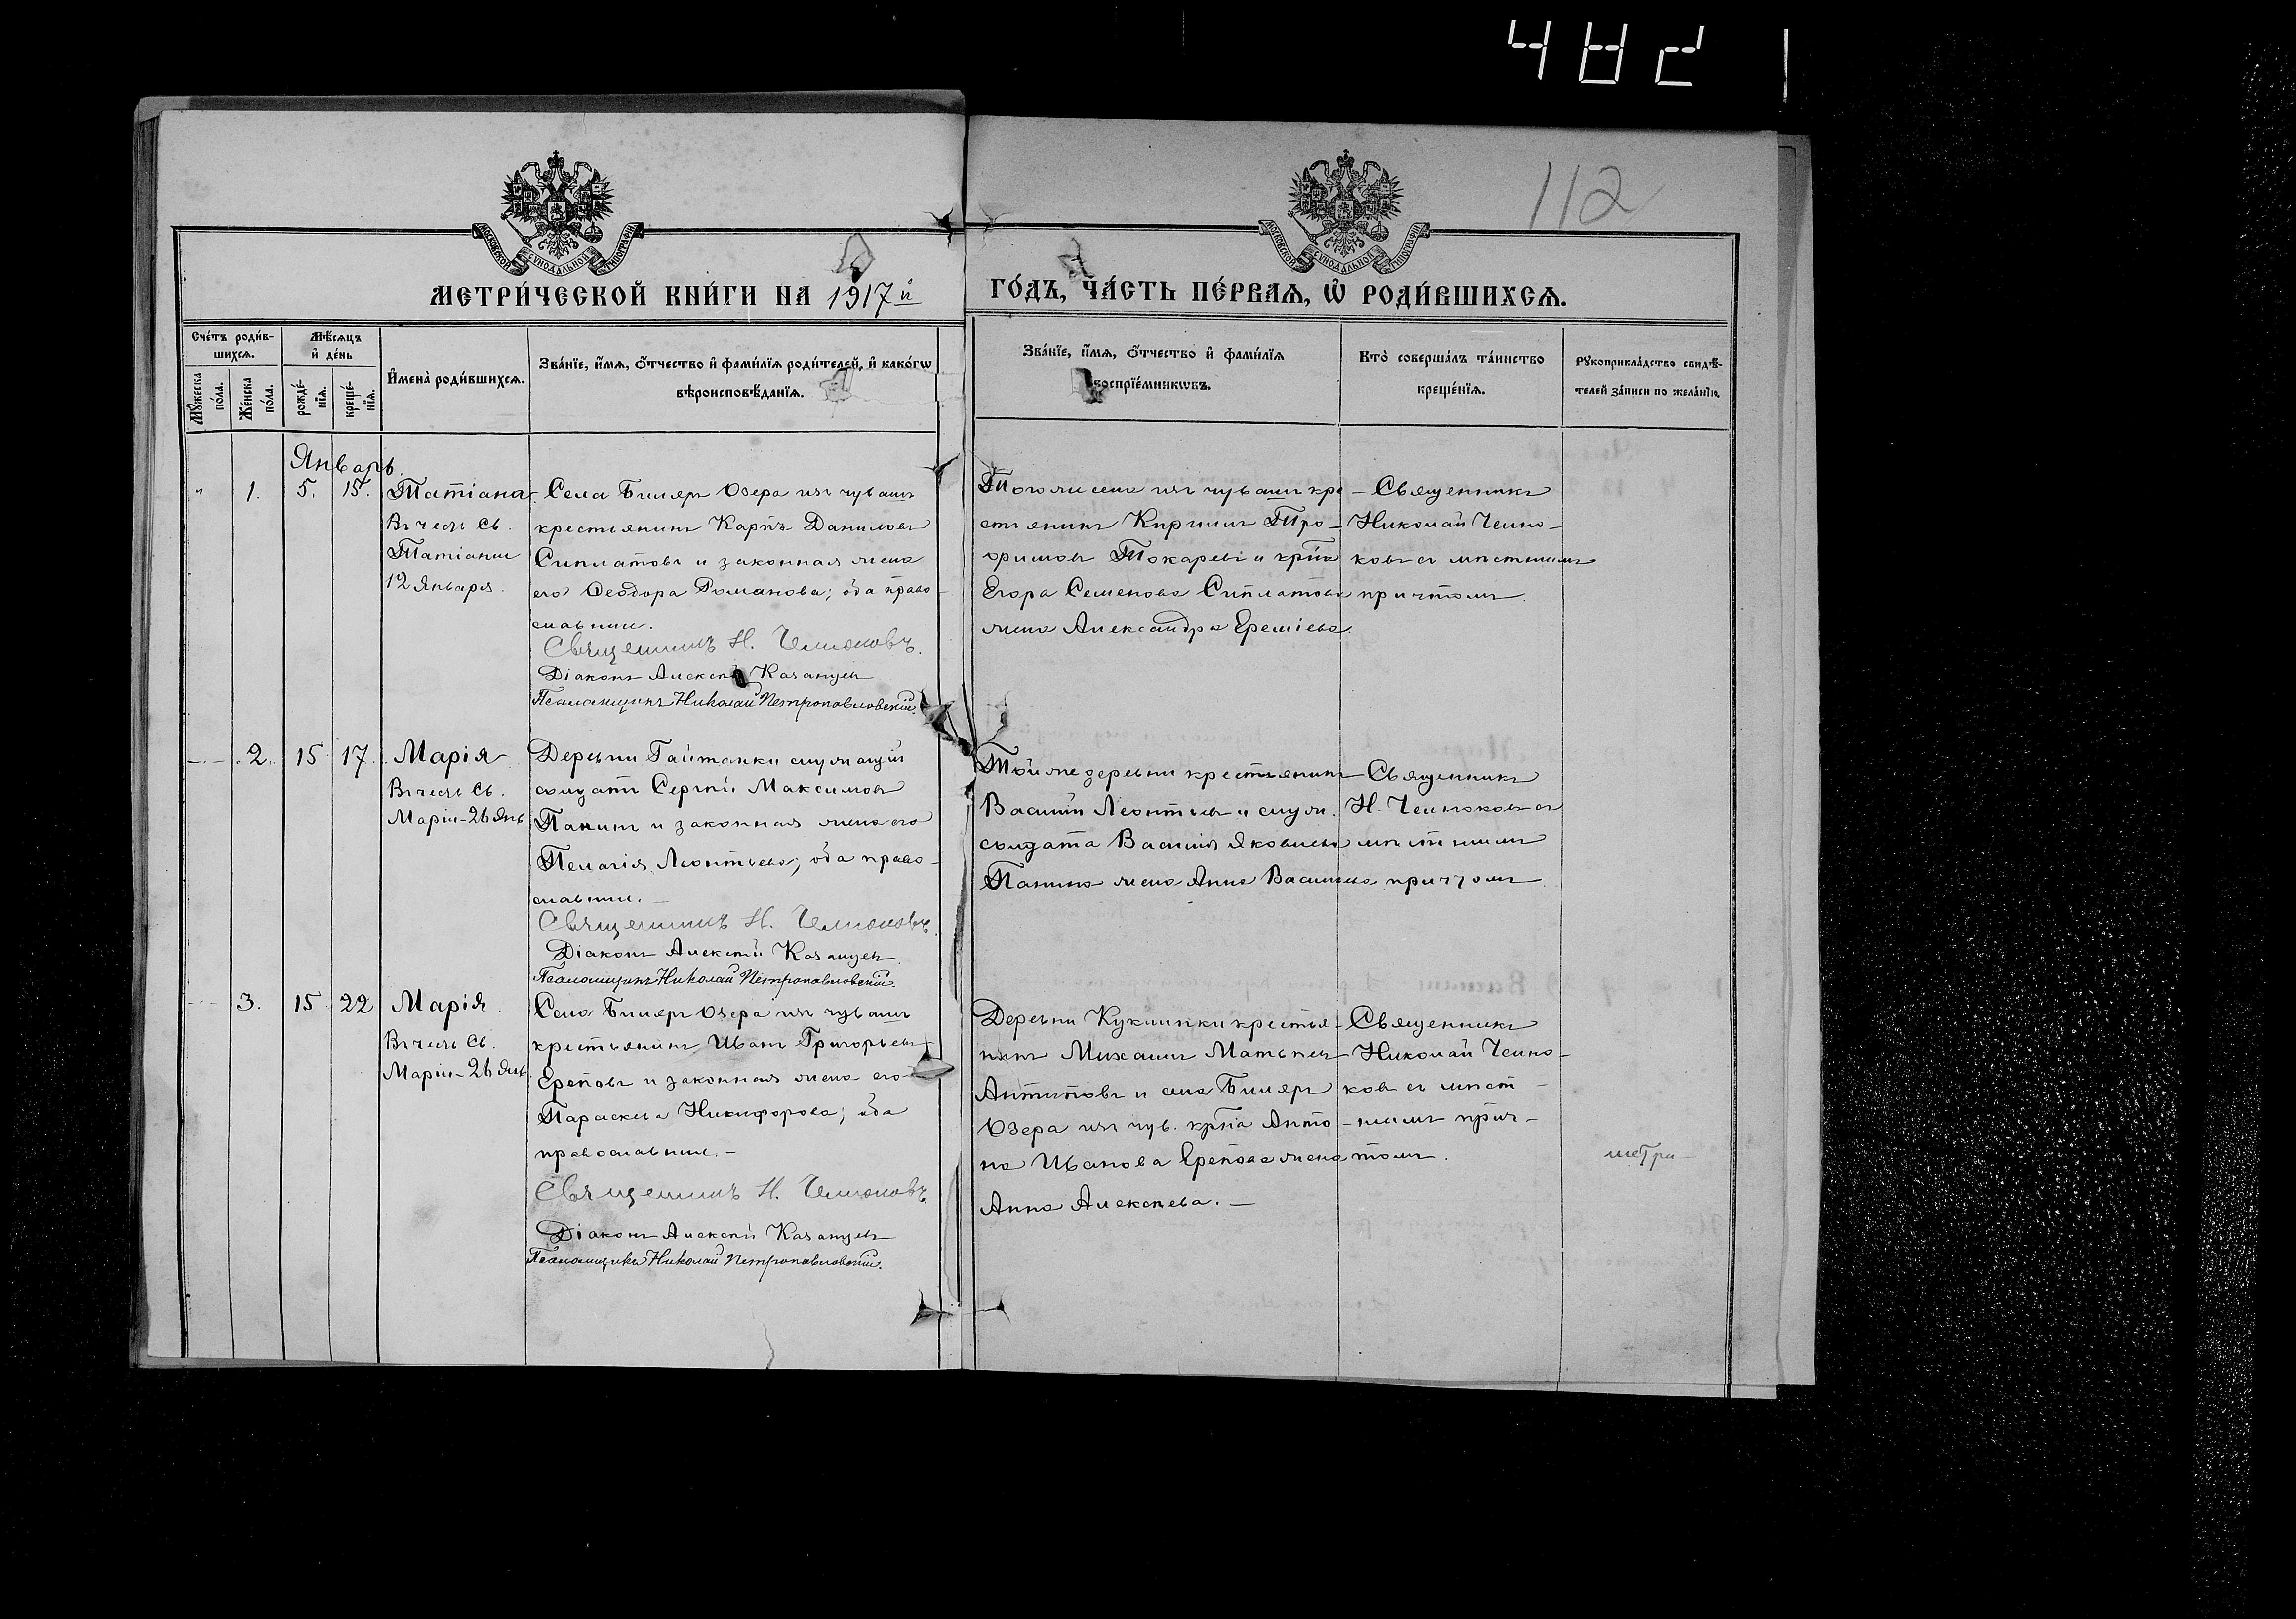 482
112
МОСКОВСКОЙ СѴНОДАЛЬНОЙ ТИПОГРАФІИ
МОСКОВСКОЙ СѴНОДАЛЬНОЙ ТИПОГРАФІИ
МЕТРИ́ЧЕСКОЙ КНИ́ГИ НА 1917й
ГО́ДЪ, ЧА́СТЬ ПЕ́РВАѦ, Ѡ҆ РОДИ́ВШИХСѦ.
Сче́тъ роди́в-
шихсѧ.
Мꙋ́жеска по́ла.
Же́нска по́ла.
Мѣ́сѧцъ
и҆ де́нь
рожде́-
нїѧ.
креще́-
нїѧ.
И҆мена̀ роди́вшихсѧ.
Зва́нїе, и҆́мѧ, ѻ҆́тчество и҆ фами́лїѧ роди́телей, и҆ како́гѡ
вѣроисповѣ́данїѧ.
Зва́нїе, и҆́мѧ, ѻ҆́тчество и҆ фами́лїѧ
воспрїе́мникѡвъ.
Кто̀ соверша́лъ та́инство
креще́нїѧ.
Рꙋкоприкла́дство свидѣ́-
телей за́писи по жела́нїю.
Январь.
" 1. 5. 15.
Татіана
Въ честь Св.
Татіаны
12 Января.
Села Билярь Озера изъ чувашъ
крестьянинъ Карпъ Даниловъ
Сиплатовъ и законная жена
его Феодора Романова; оба право-
славные.
Священникъ Н. Чемоковъ.
Діаконъ Алексѣй Казанцев
Псаломщикъ Николай Петропавловскій.
Того же села изъ чувашъ кре-
стьянинъ Кириллъ Тро-
фимовъ Токаревъ и кр-на
Егора Семенова Сиплатова
жена Александра Еремѣева.
Священникъ
Николай Чемо-
ковъ съ мѣстнымъ
причтомъ.
2. 15 17.
Марія
Въ честь Св.
Маріи - 26 Янв
Деревни Гайтанки служащій
солдатъ Сергѣй Максимовъ
Панинъ и законная жена его
Пелагія Леонтьева; оба право-
славные.
Священникъ Н. Чемоковъ.
Діаконъ Алексѣй Казанцев
Псаломщикъ Николай Петропавловскій.
Той же деревни крестьянинъ
Василій Леонтьевъ и служ.
солдата Василія Яковлева
Панина жена Анна Васильева
Священникъ
Н. Чемоковъ съ
мѣстнымъ
причтомъ
3. 15 22
Марія.
Въ честь Св.
Маріи - 26 Янв.
Села Билярь Озера изъ чувашъ
крестьянинъ Иванъ Григорьевъ
Ереповъ и законная жена его
Параскева Никифорова; оба
православные. -
Священникъ Н. Чемоковъ.
Діаконъ Алексѣй Казанцев
Псаломщикъ Николай Петропавловскій.
Деревни Кукшинки крестья-
нинъ Михаилъ Матвѣев
Антиповъ и села Билярь
Озера изъ чув. кр-на Анто-
на Иванова Ерепова жена
Анна Алексѣева. -
Священникъ
Николай Чемо-
ковъ съ мѣст-
нымъ прич-
томъ.